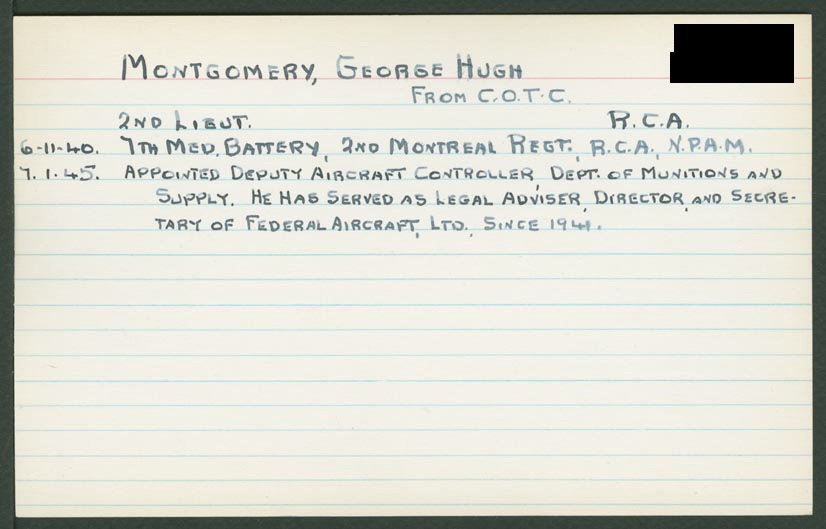 MONTGOMERY, GEORGE HUGH
FROM C.O.T.C.
2ND LIEUT. R.C.A.
6-11-40. 7TH MED. BATTERY, 2ND MONTREAL REGT., R.C.A., N.P.A.M.
7.1.45. APPOINTED DEPUTY AIRCRAFT CONTROLLER, DEPT. OF MUNITIONS AND
SUPPLY. HE HAS SERVED AS LEGAL ADVISER, DIRECTOR, AND SECRE-
TARY OF FEDERAL AIRCRAFT, LTD., SINCE 1941.